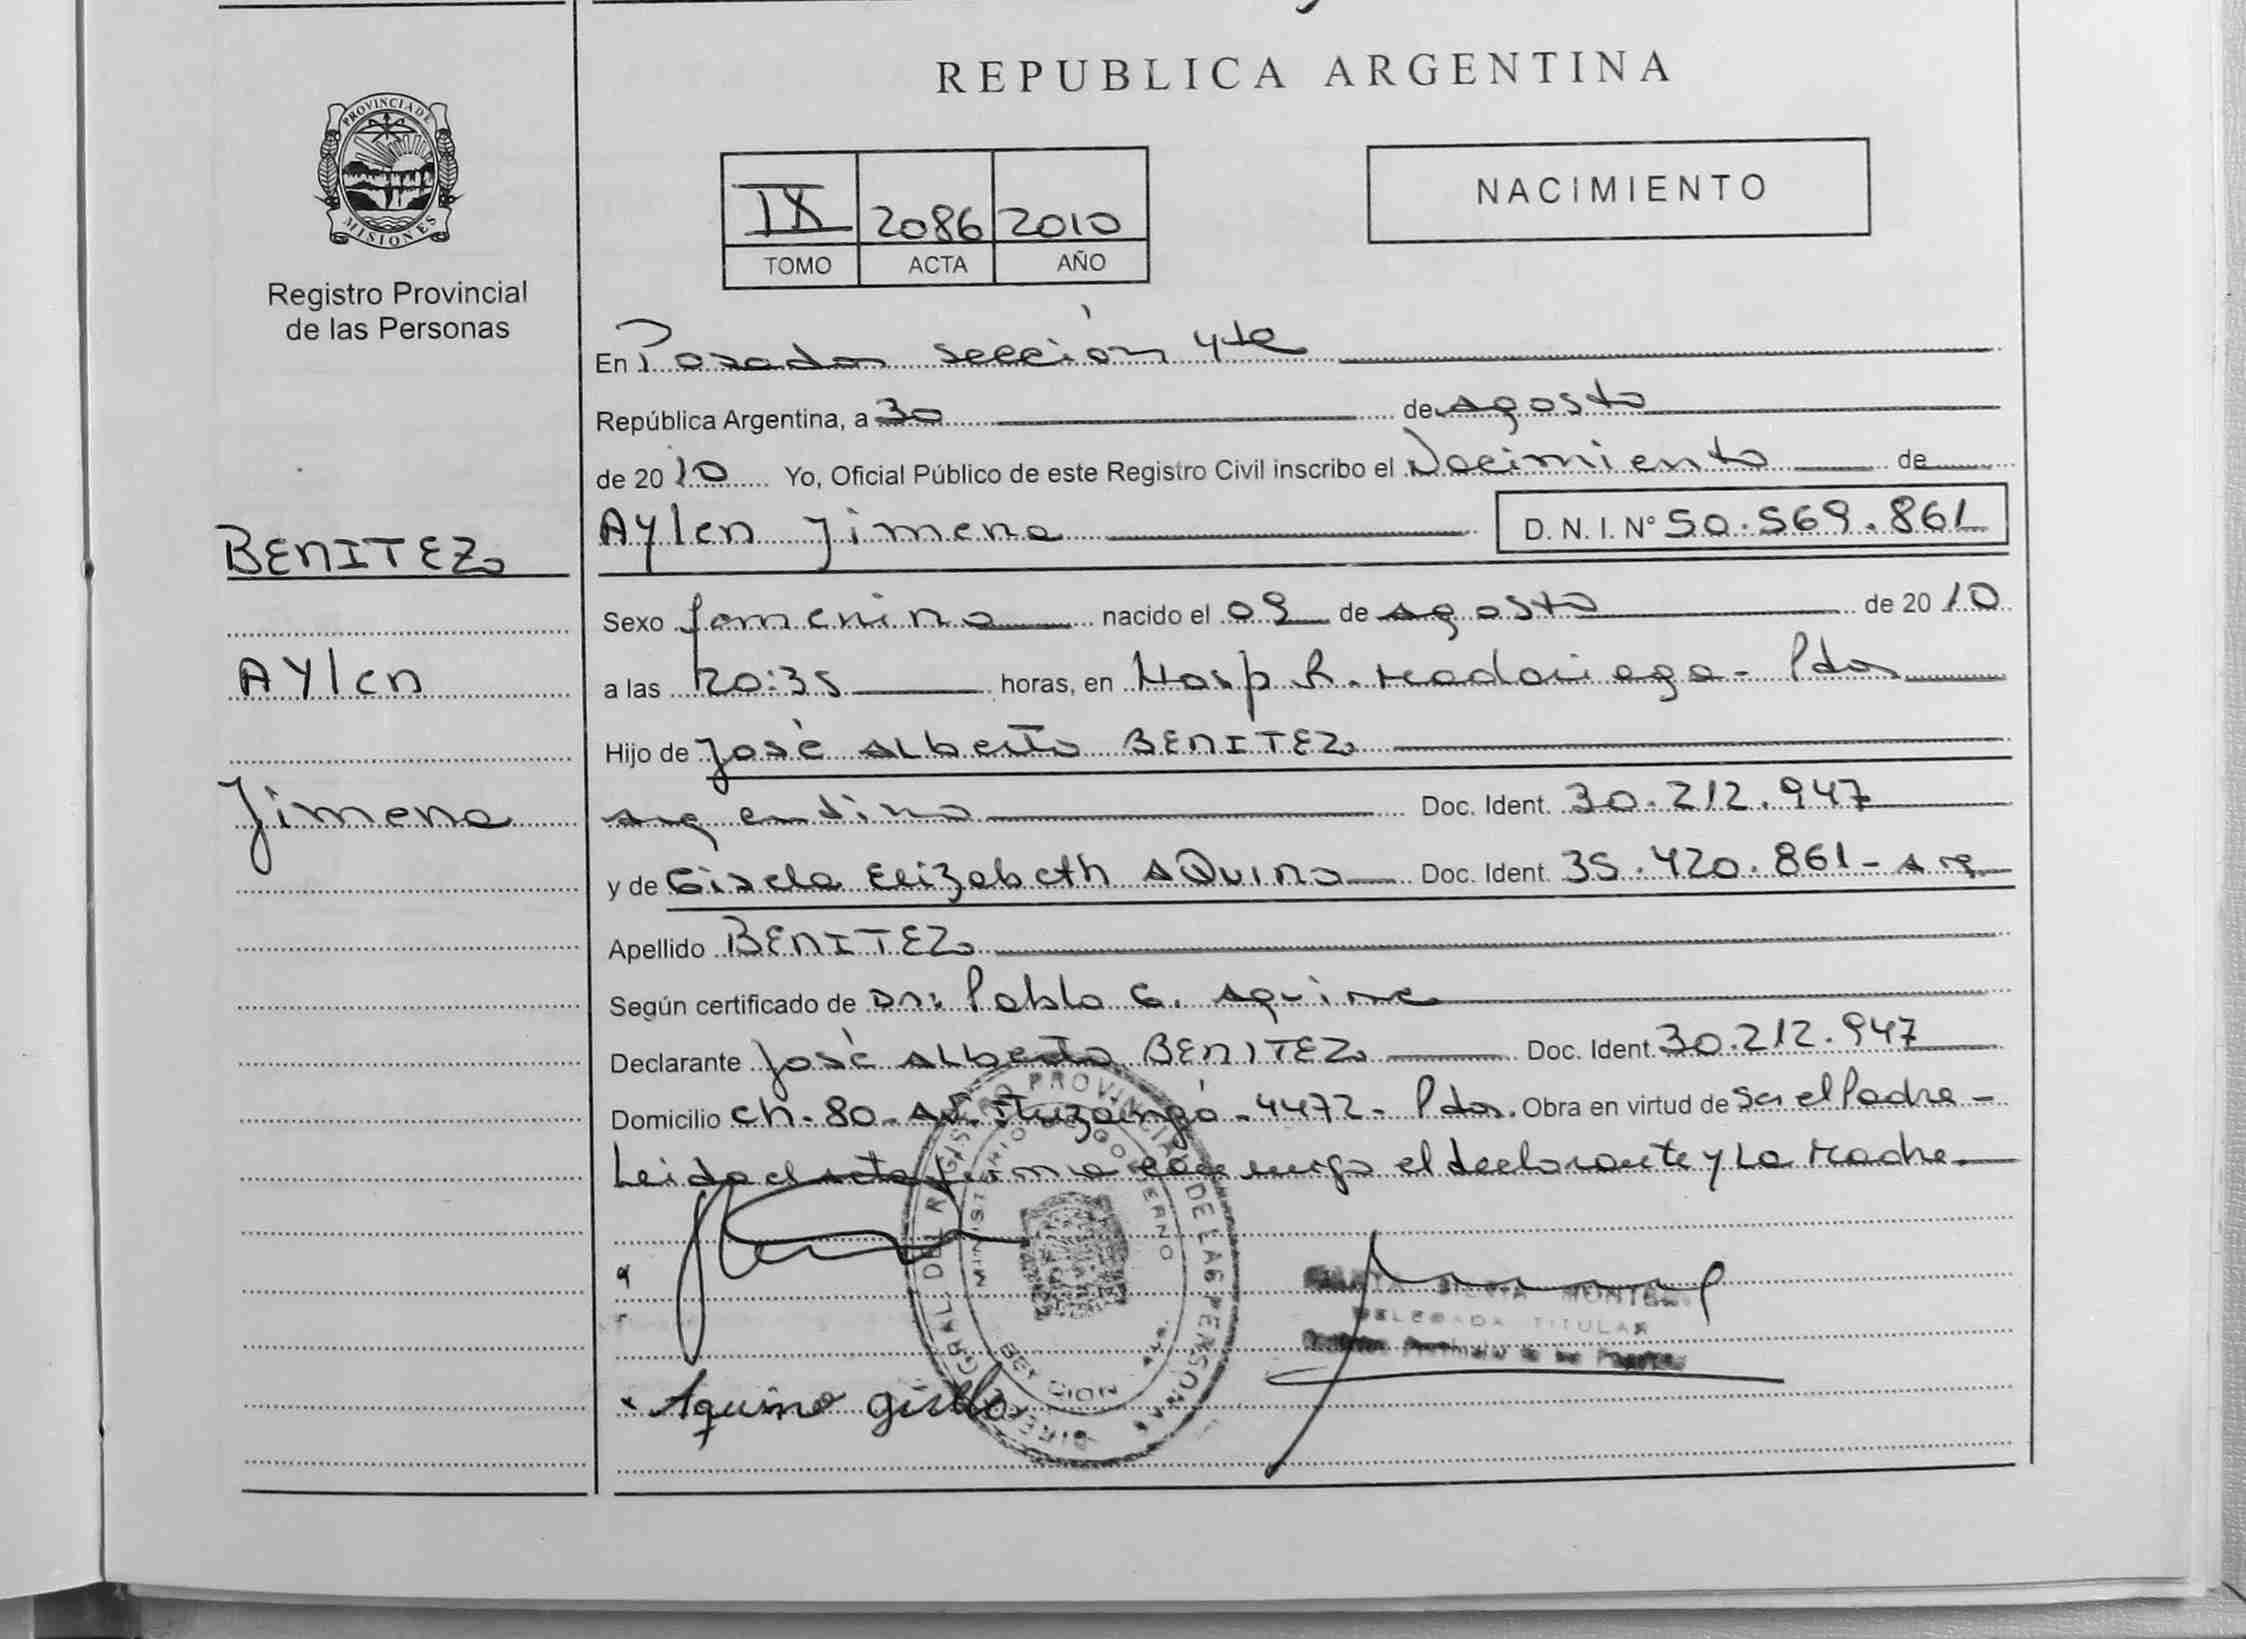 REPUBLICA ARGENTINA
PROVINCIA DE
MISIONES
Registro Provincial
de las Personas
NACIMIENTO
IX 2086 2010
TOMO ACTA AÑO
En Posadas sección 4ta
República Argentina, a 30 de agosto
de 2010 Yo, Oficial Público de este Registro Civil inscribo el Nacimiento de
Aylen Jimena D. N. I. N° 50.569.861
BENITEZ
Aylen
Jimena
Sexo femenino nacido el 09 de agosto de 2010
a las 20:35 horas, en Hosp R. Madariaga - Pdas
Hijo de José Alberto BENITEZ
argentino Doc. Ident. 30.212.947
y de Gisela Elizabeth AQuino Doc. Ident. 35.420.861 - arg
Apellido BENITEZ
Según certificado de Dr: Pablo G. Aquino
Declarante José Alberto BENITEZ Doc. Ident. 30.212.947
Domicilio Ch. 80 - Av. Ituzaingó - 4472 - Pdas. Obra en virtud de ser el Padre -
Leida el acta firma conmigo el declarante y La Madre.
DIRECC GRAL DEL REGISTRO PROVINCIAL DE LAS PERSONAS
MINISTERIO DE GOBIERNO
MONTE
DELEGADA TITULAR
Aquino gisela